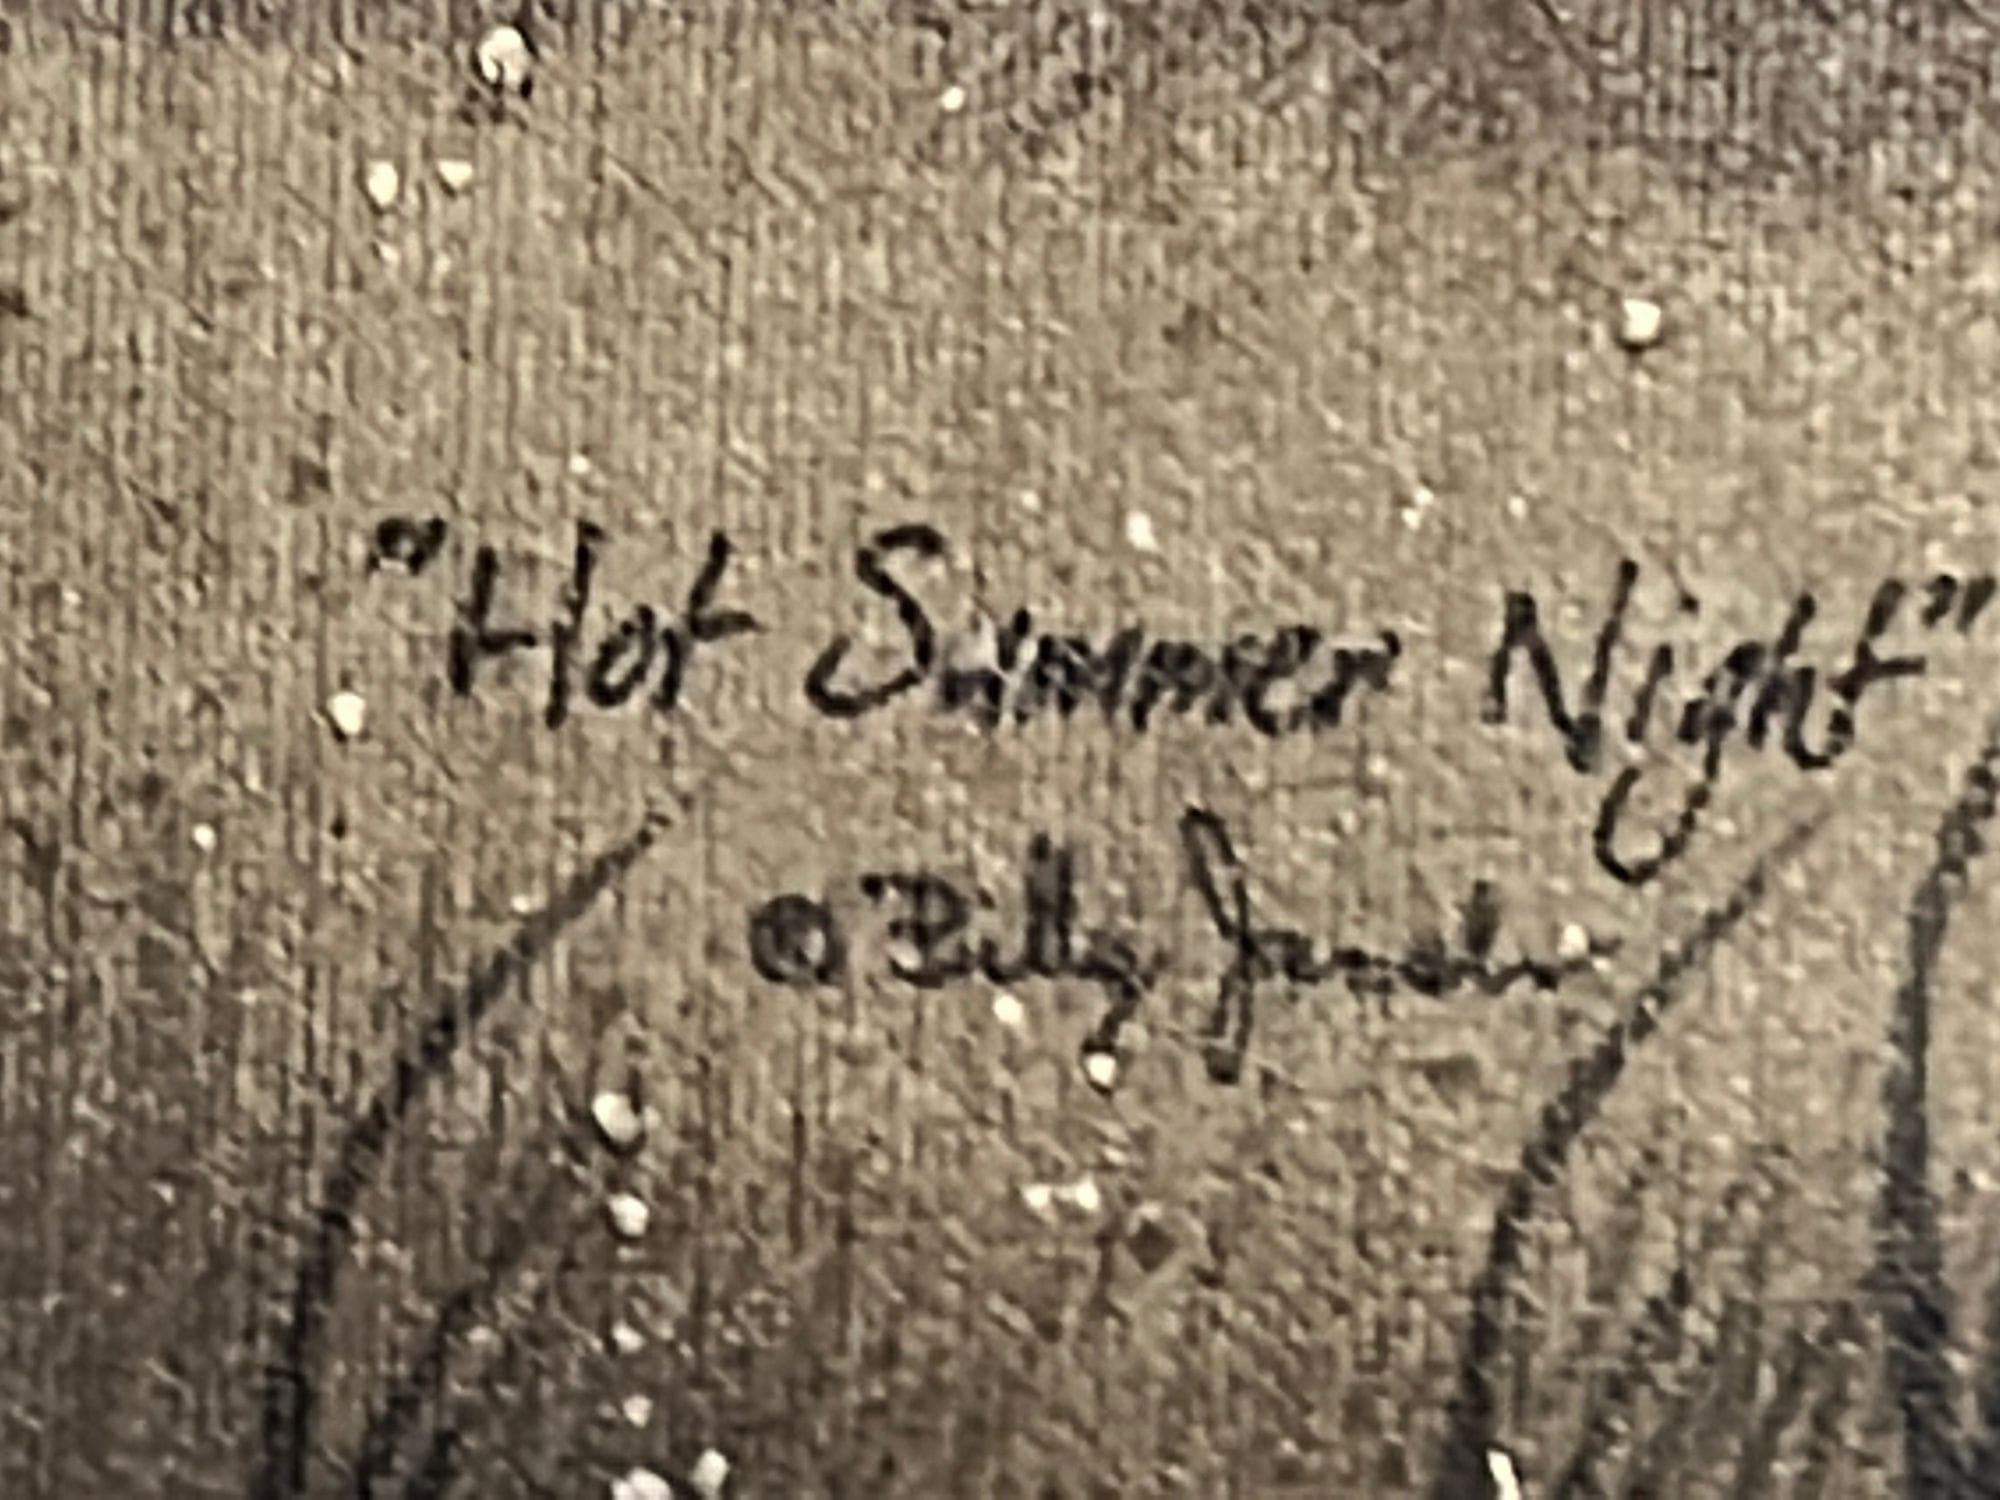 "Hot Summer Night"
© Billy